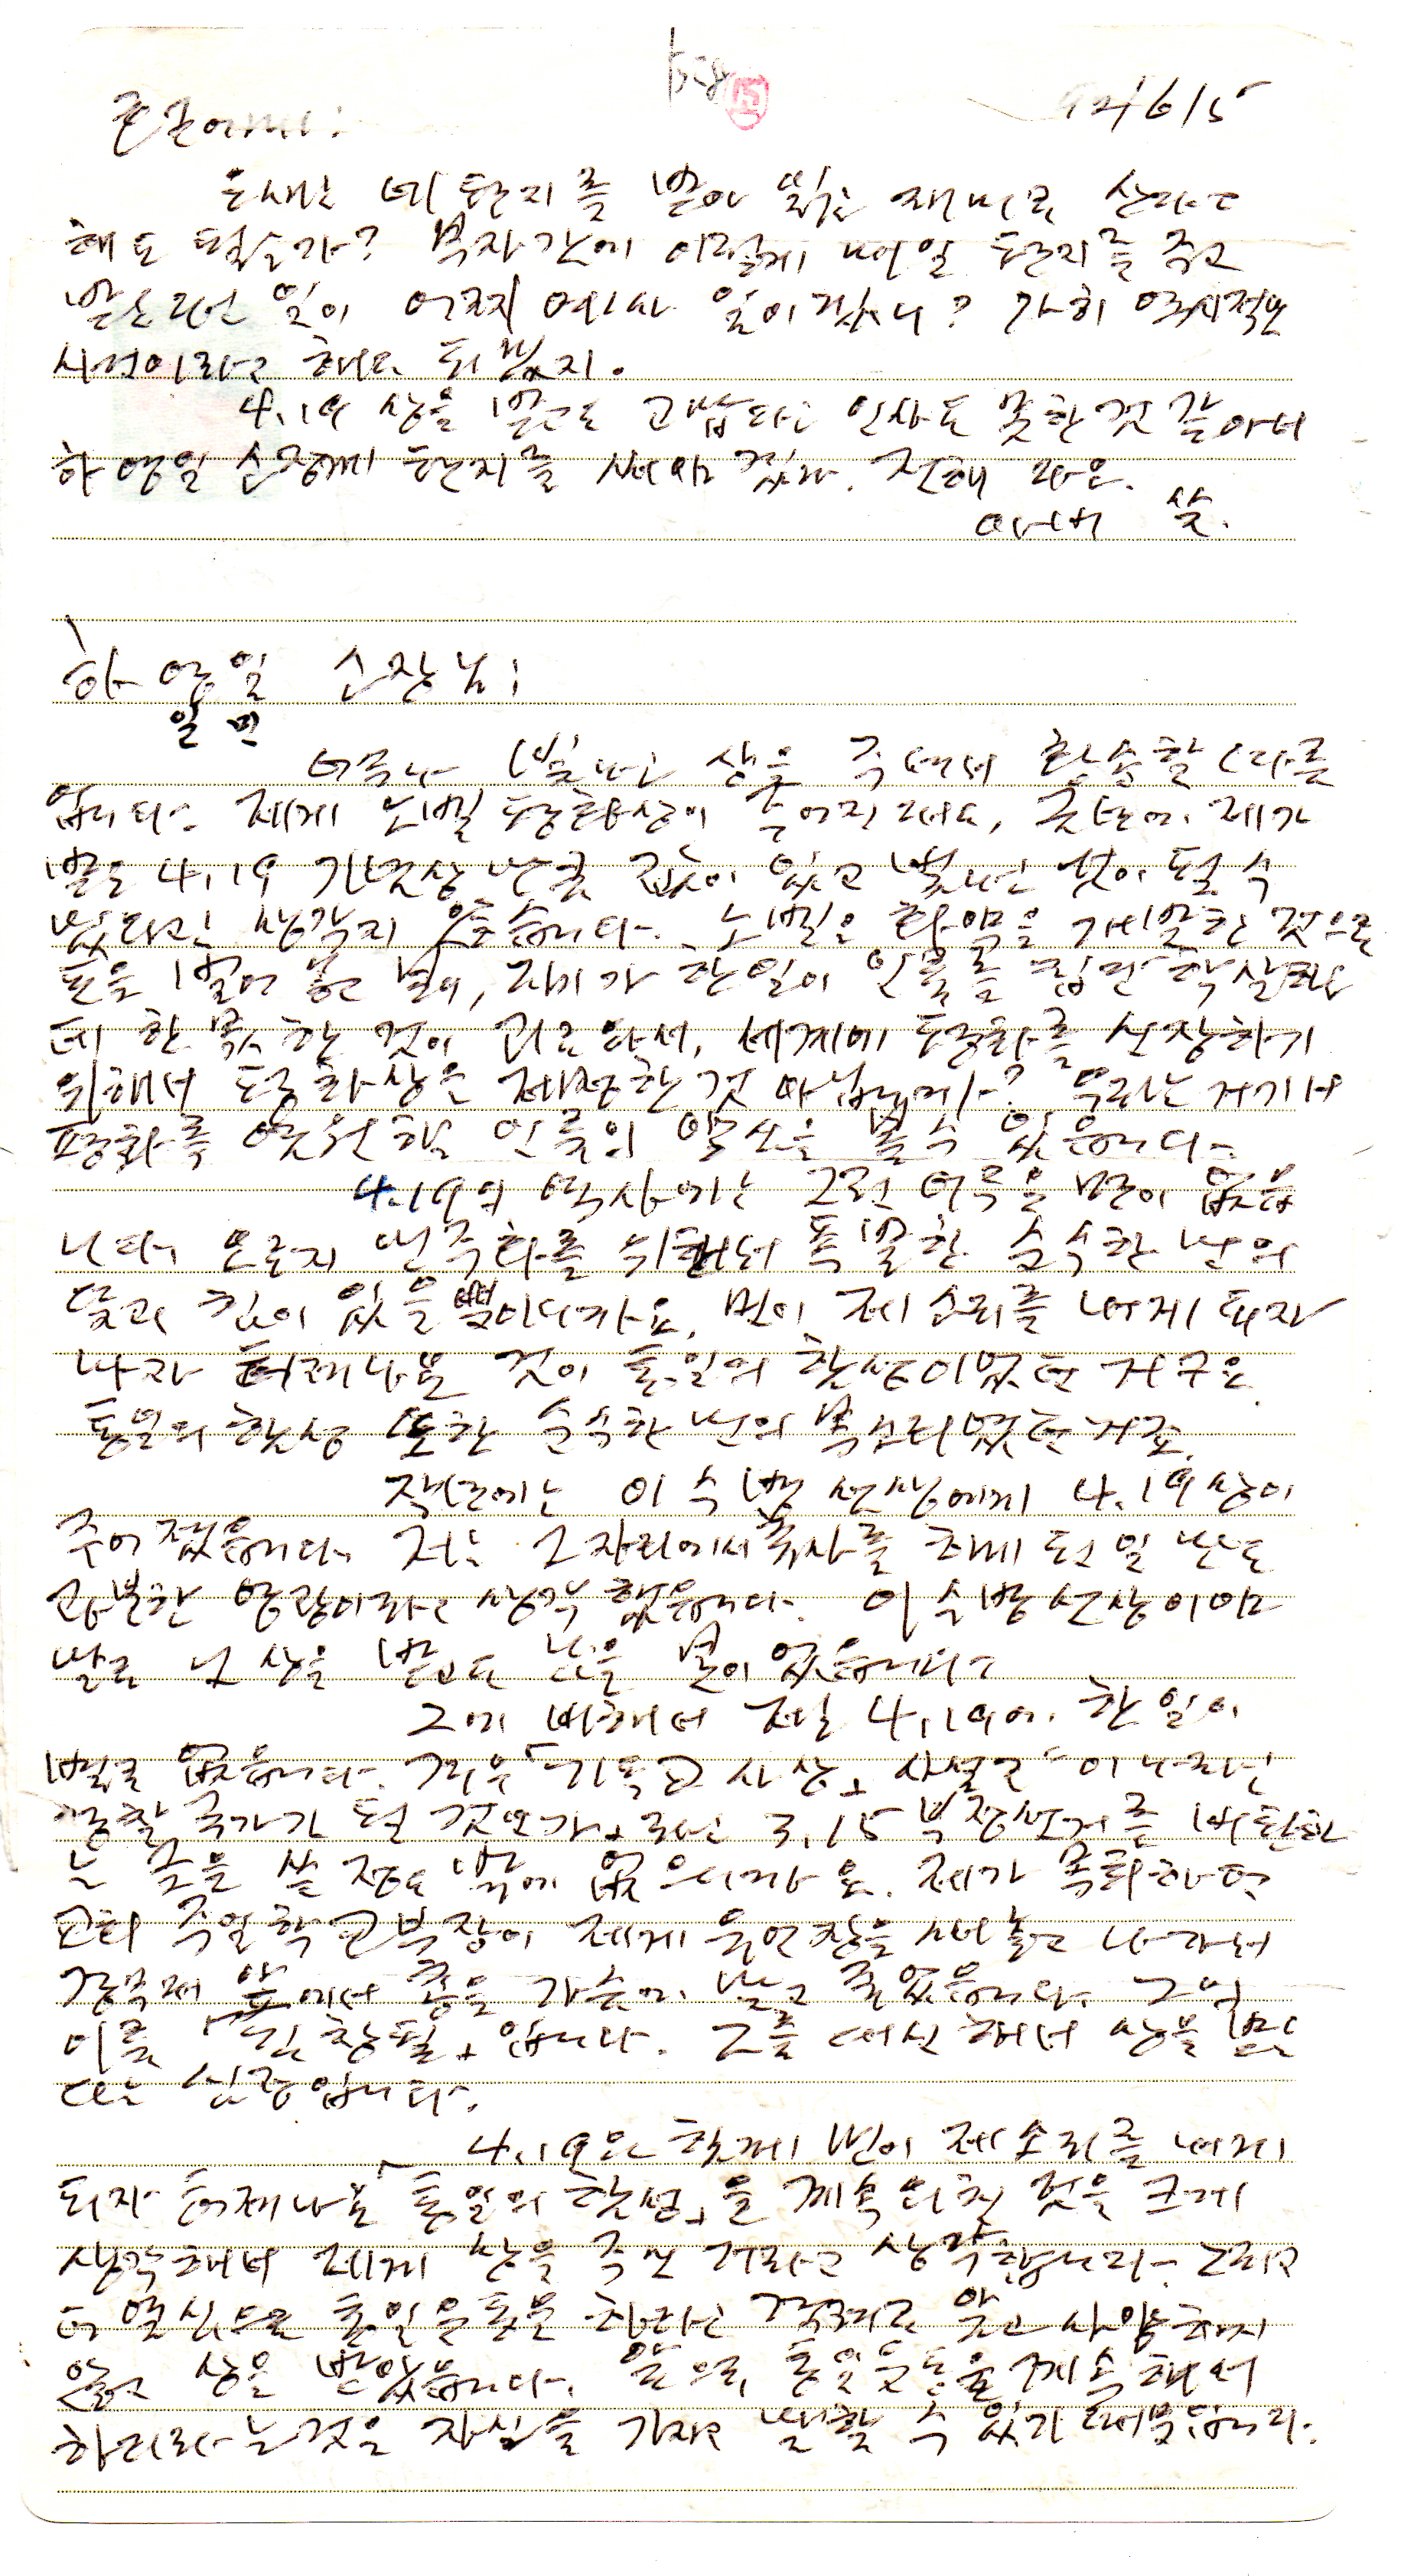 92/6/15
요새는 네 편지를 받아 읽는 재미로 산다고
해도 될는가? 부자간에 이렇게 매일 편지를 주고
받는다는 일이 어찌 예사 일이겠니? 가히 역사적인
사건이라고 해도 되겠지.
4.19 상을 받고도 고맙다는 인사도 못한 것 같아서
하 영일 순장께 편지를 써야 겠다. 전해 다오.
아버 씀.
하 영일 순장님;
일 민
너무나 빛나는 상을 주셔서 황송할 따름
입니다. 제게 노벨 평화상이 주어진대도, 이번에 제가
받은 4.19 기념상 만큼 값이 있고 빛나는 것이 될 수
없다고 생각지 않습니다. 노벨은 화약을 개발한 것으로
돈을 벌어 놓고 보니, 자기가 한 일이 인류를 집단 학살하는
데 한 몫 한 것이 괴로와서, 세계에 평화를 신장하기
위해서 평화상을 제정한 것 아닙니까? 우리는 거기서
평화를 염원하는 인류의 양심을 볼 수 있읍니다.
4.19의 역사에는 그런 어두운 면이 없읍
니다. 오로지 민주화를 위해서 폭발한 순수한 민의
뜻과 힘이 있을 뿐이니까요. 민이 제 소리를 내게 되자
나자 터져나온 것이 통일의 함성이었던 거구요.
통일의 함성 또한 순수한 민의 목소리였던 거죠.
작년에는 이 수병 선생에게 4.19상이
주어졌읍니다. 저는 그 자리에서 축사를 하게 된 일 만도
과분한 영광이라고 생각했읍니다. 이 수병 선생이야
말로 그 상을 받고도 남을 분이었읍니다.
그에 비해서 저는 4.19에 한 일이
별로 없읍니다. 겨우 「기독교 사상」 사설로 이 나라는
경찰 국가가 된 것인가」라는 3.15 부정선거를 비판하
는 글을 쓸 정도 밖에 없으니까요. 제가 목회하던
교회 주일학교 부장이 제게 유언장을 써 놓고 나가서
경무대 앞에서 총을 가슴에 맞고 죽었읍니다. 그의
이름 「김창필」입니다. 그를 대신해서 상을 받는
다는 심정입니다.
4.19와 함께 민이 제 소리를 내게
되자 터져나온 「통일의 함성」을 계속 외친 것을 크게
생각해서 제게 상을 주신 거라고 생각합니다. 그리고
더 열심으로 통일운동을 하라는 격려로 알고 사양하지
않고 상을 받았읍니다. 앞으로 통일운동을 계속해서
하리라는 것을 자신을 가지고 말할 수 있기 때문입니다.